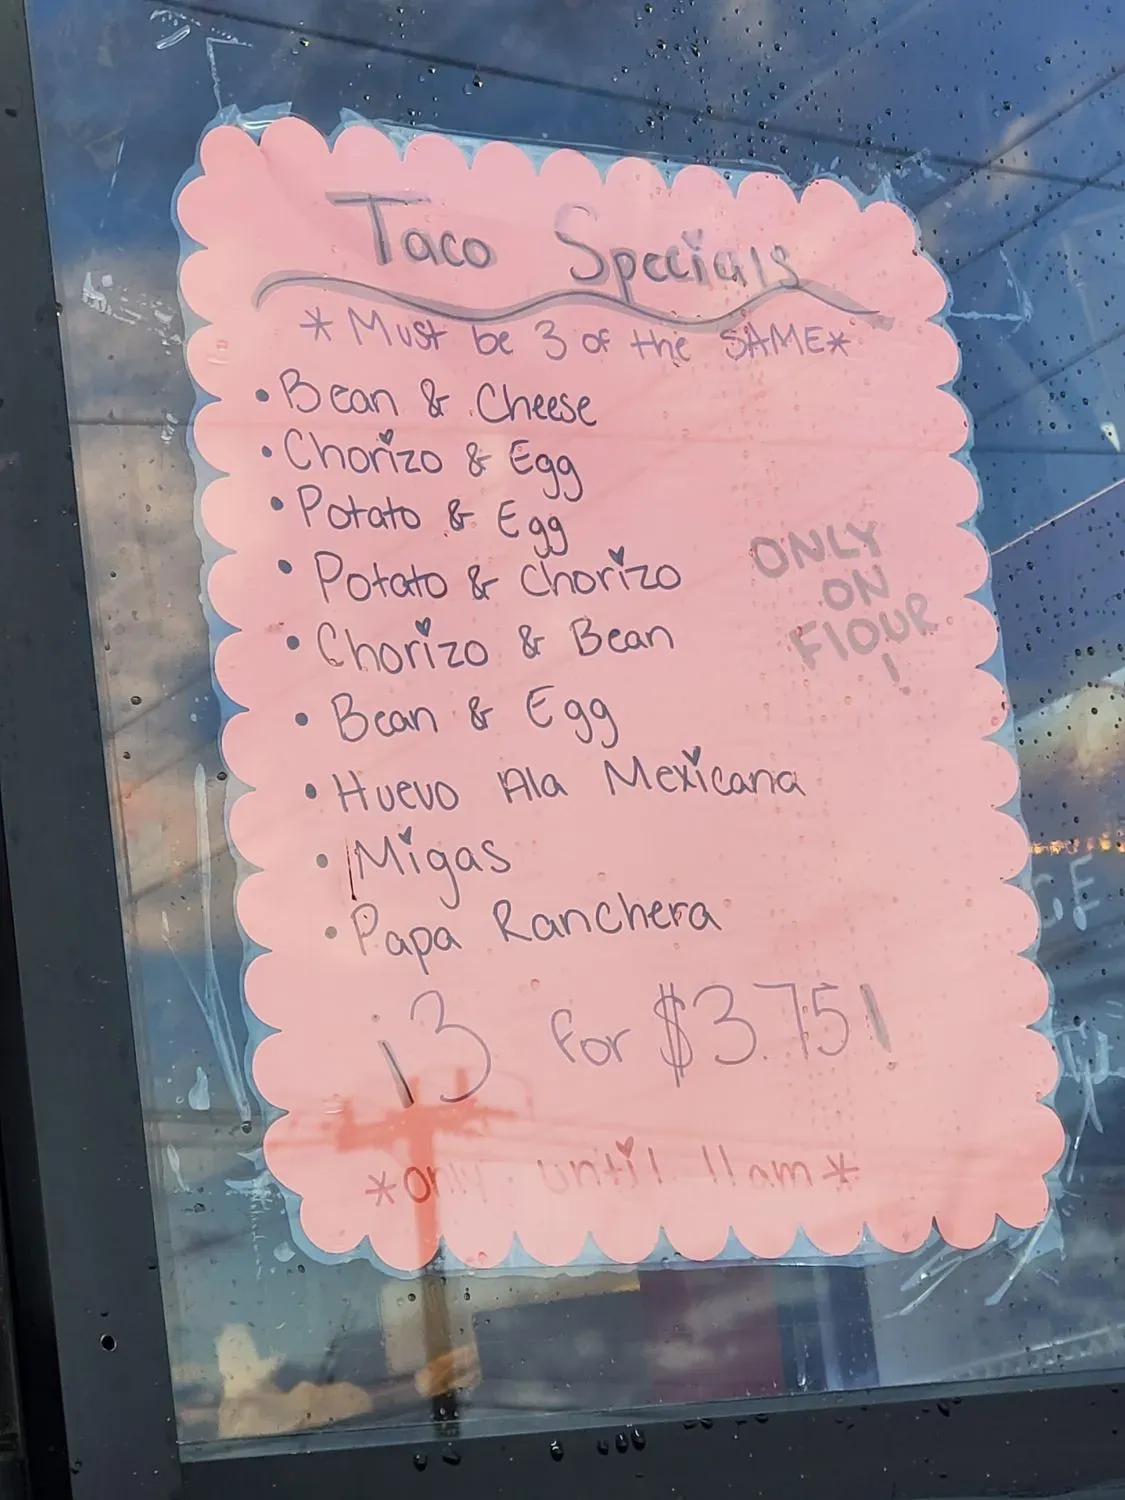 Taco Specials
*Must be 3 of the SAME*
• Bean & Cheese
• Chorizo & Egg
• Potato & Egg
• Potato & Chorizo
• Chorizo & Bean
• Bean & Egg
• Huevo Ala Mexicana
• Migas
• Papa Ranchera
ONLY
ON
FlOUR
!
¡3 for $3.75!
*only until 11am*